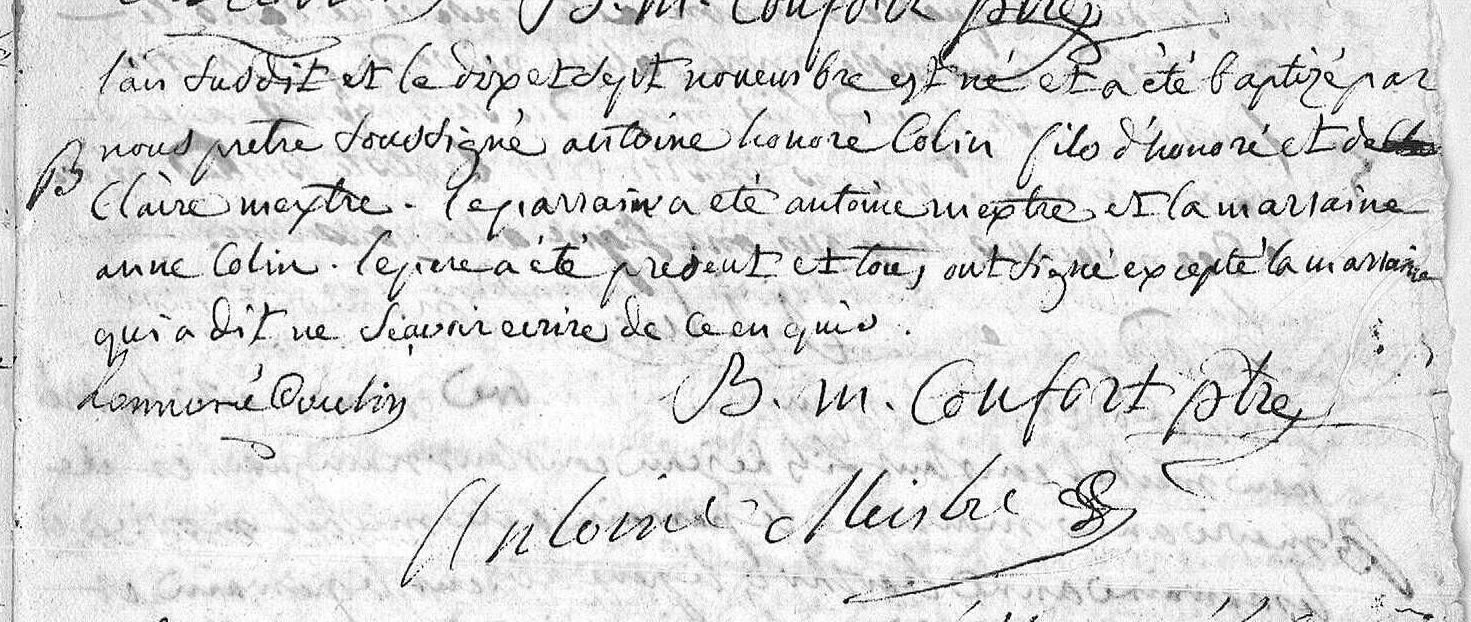 B. m. Confort ptre
l'an susdit et le dix et sept novembre est né et a été baptizé par
B nous pretre soussigné antoine honoré Colin fils d'honoré et de
Claire mextre. le parrain a été antoine mextre et la marraine
anne Colin. le pere a été present et tous ont signé excepté la marraine
qui a dit ne sçavoir ecrire de ce enquis.
honnoré Coulin B. m. Confort ptre
Antoine Meistre